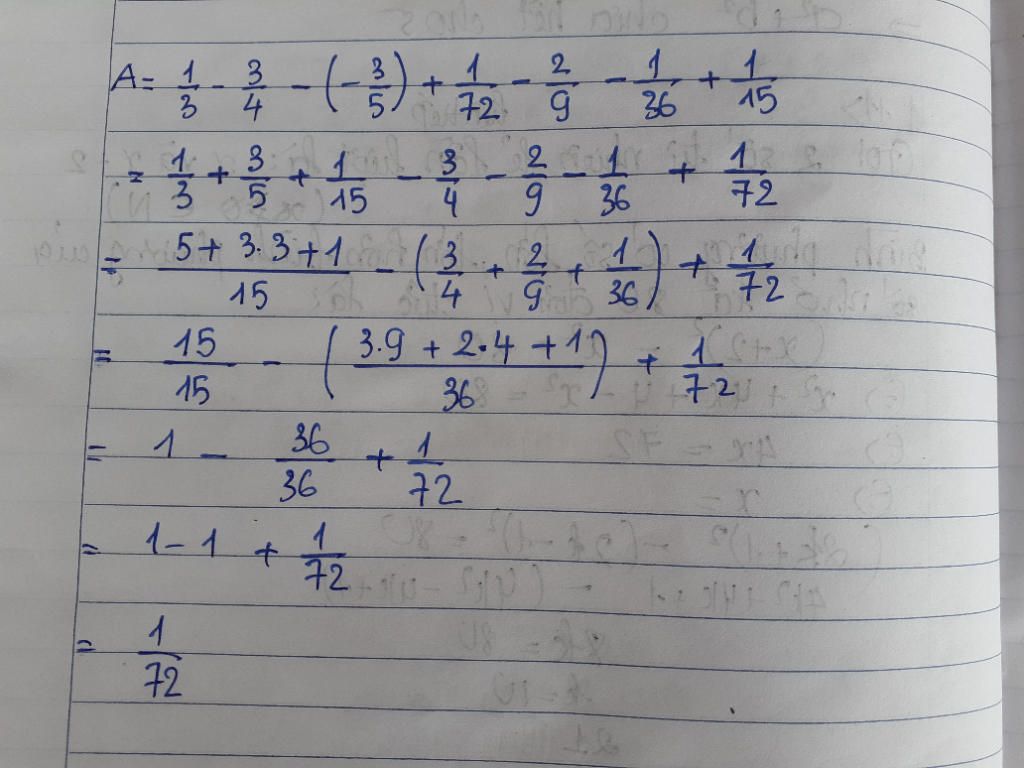 A = 1/3 - 3/4 - (-3/5) + 1/72 - 2/9 - 1/36 + 1/15
= 1/3 + 3/5 + 1/15 - 3/4 - 2/9 - 1/36 + 1/72
= (5 + 3.3 + 1)/15 - (3/4 + 2/9 + 1/36) + 1/72
= 15/15 - ((3.9 + 2.4 + 1)/36) + 1/72
= 1 - 36/36 + 1/72
= 1 - 1 + 1/72
= 1/72